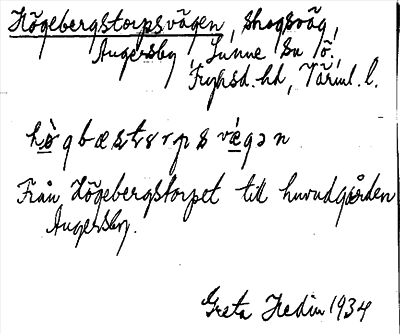 Högebergstorpsvägen, skogsväg,
Augersby, Sunne sn ö.,
Fryksd. hd, Värml. l.
hø̀gbæstɔrpsvɛ́gən
Från Högebergstorpet till huvudgården
Augersby.
Greta Hedin 1934